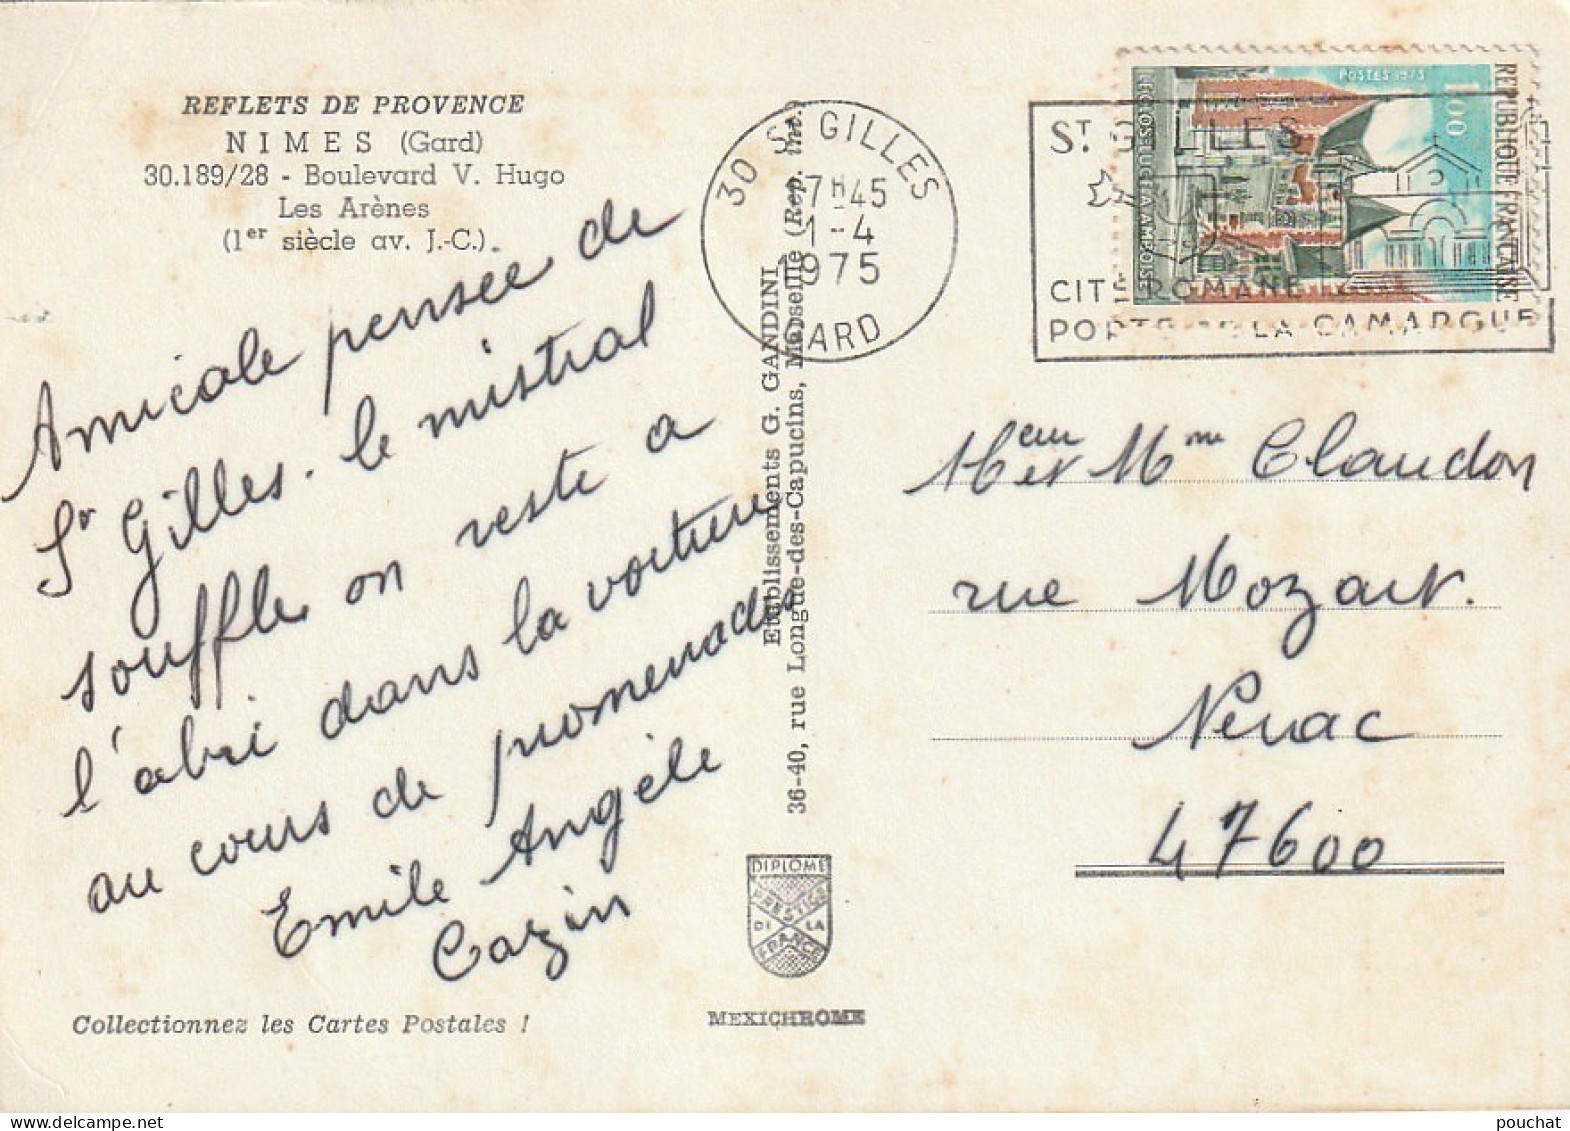 REFLETS DE PROVENCE
NIMES (Gard)
30.189/28 - Boulevard V. Hugo
Les Arènes
(1er siècle av. J.-C.)
Amicale pensée de
St Gilles. le mistral
souffle, on reste a
l'abri dans la voiture
au cours de promenades
Emile Angèle
Cazin
Collectionnez les Cartes Postales !
Etablissements G. GANDINI
36-40, rue Longue-des-Capucins, Marseille (Rep. int.)
DIPLOME
PRESTIGE
DE LA
FRANCE
MEXICHROME
30 St GILLES
7H45
1-4
1975
GARD
ST GILLES
CITÉ ROMANE
PORTE DE LA CAMARGUE
POSTES 1973
1,00
REPUBLIQUE FRANÇAISE
LE CLOS LUCÉ A AMBOISE
Mme Claudon
rue Mozart.
Nérac
47600
pouchat